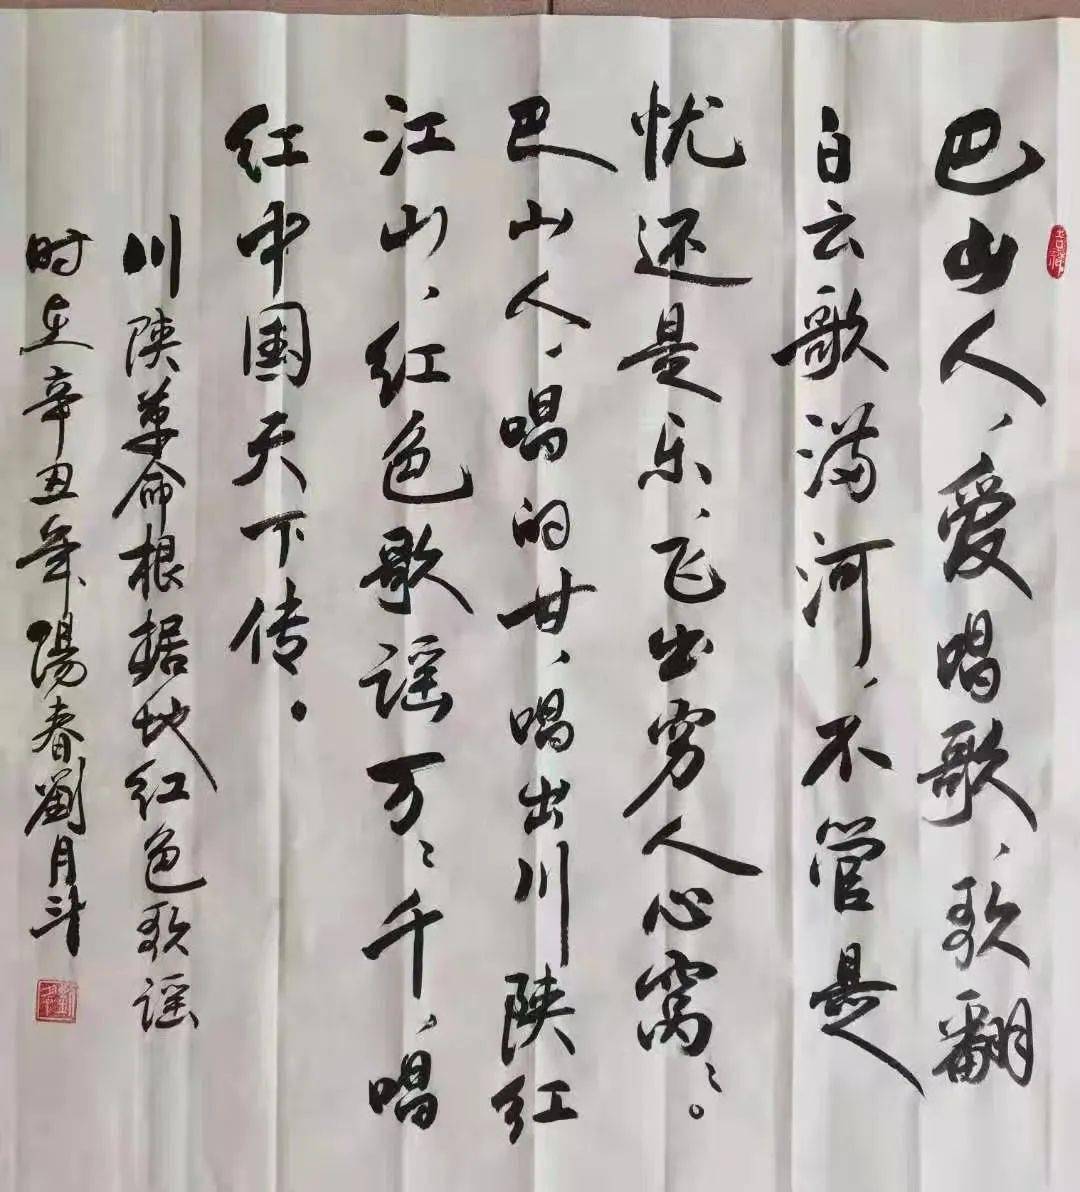 巴山人、爱唱歌、歌翻
白云歌满河、不管是
忧还是乐、飞出穷人心窝〻。
巴山人、唱的甘、唱出川陕红
江山、红色歌谣万〻千、唱
红中国天下传。
川陕革命根据地红色歌谣
时在辛丑年陽春劉月斗